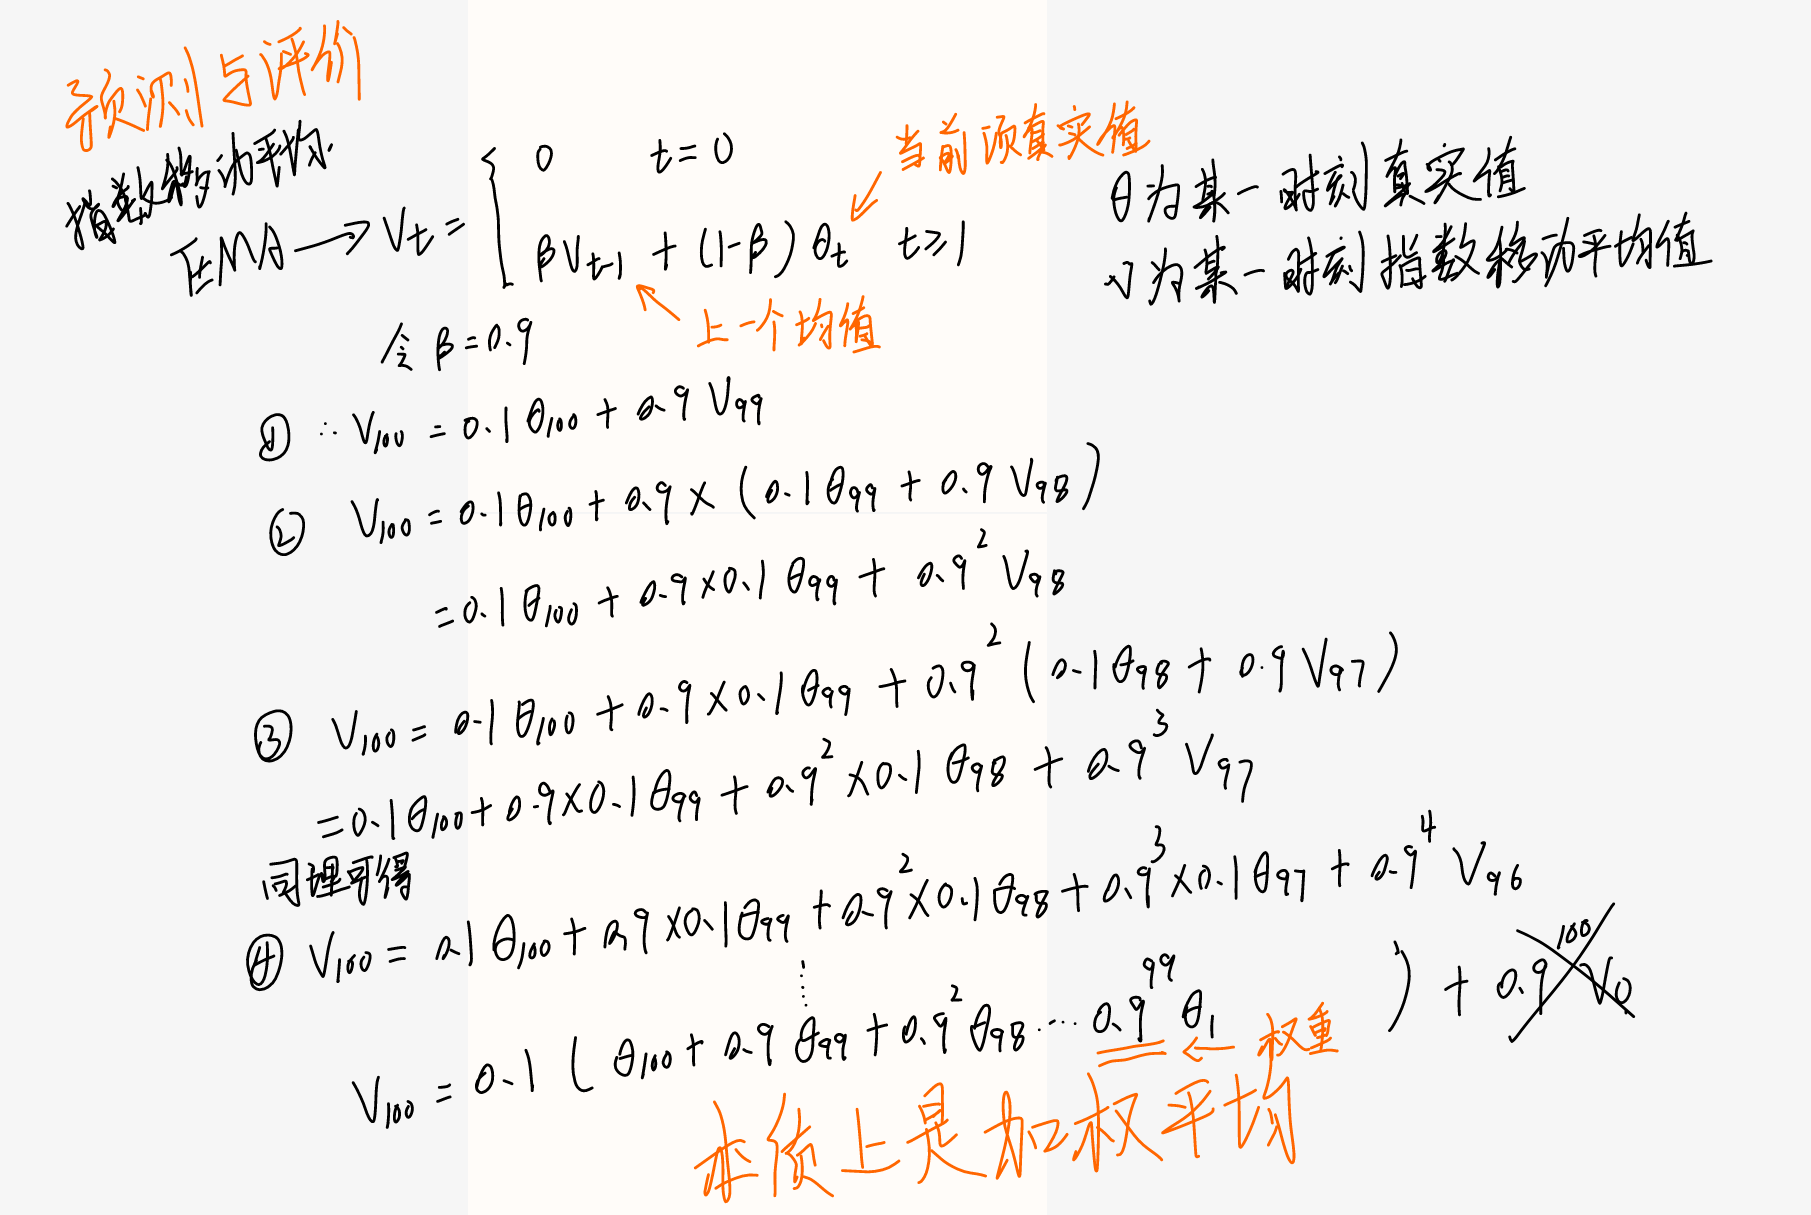 预测与评价
指数移动平均
EMA → Vt = { 0 t=0
βVt-1 + (1-β) θt t≥1
当前项真实值
上一个均值
θ为某一时刻真实值
v为某一时刻指数移动平均值
令 β=0.9
① ∴ V100 = 0.1θ100 + 0.9 V99
② V100 = 0.1θ100 + 0.9 × (0.1θ99 + 0.9 V98)
= 0.1θ100 + 0.9×0.1θ99 + 0.9² V98
③ V100 = 0.1θ100 + 0.9×0.1θ99 + 0.9² (0.1θ98 + 0.9 V97)
= 0.1θ100 + 0.9×0.1θ99 + 0.9²×0.1θ98 + 0.9³ V97
同理可得
④ V100 = 0.1θ100 + 0.9×0.1θ99 + 0.9²×0.1θ98 + 0.9³×0.1θ97 + 0.9⁴ V96
⋮
V100 = 0.1 (θ100 + 0.9θ99 + 0.9²θ98 ··· 0.9⁹⁹θ1) + 0.9¹⁰⁰ V0
← 权重
本质上是加权平均